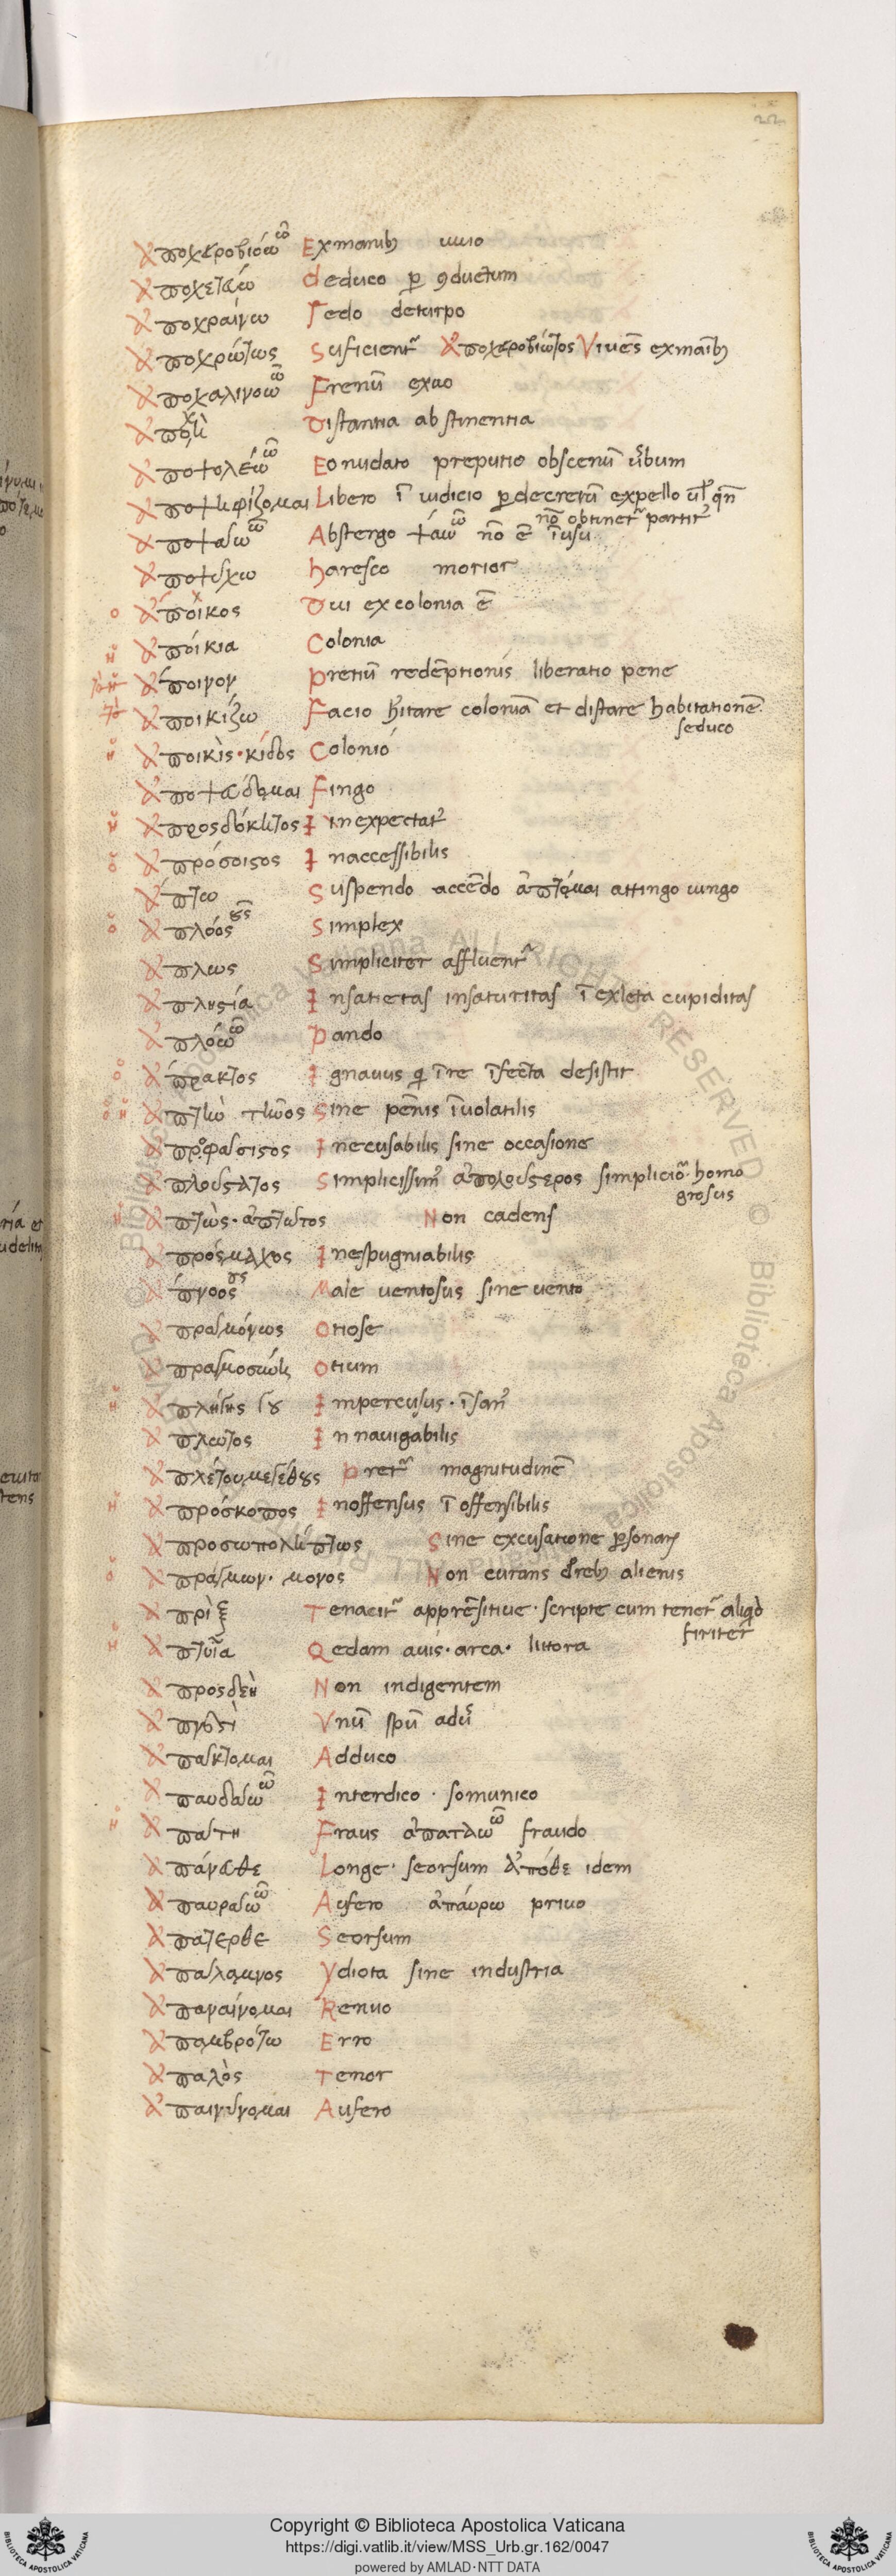 22
ἀποχεροβιόω ῶ Ex manibꝫ uiuo
ἀποχετεύω deduco ꝑ ꝯductum
ἀποχραίνω Fedo deturpo
ἀποχρώντως Suficienť ἀποχεροβιώτος Viuēs ex manibꝫ
ἀποχαλινοω ῶ Frenū exuo
ἀποχὴ Distantia abstinentia
ἀποψολέω ῶ Eo nudato preputio obscenū
ἀποψηφίζομαι Libero ī iudicio ꝑ decretū expello
nō obtinet partit
ἀποψάω ῶ Abstergo ψάω ῶ nō ē ī usu
ἀποψύχω haresco morior
ο ἄποικος Qui ex colonia ē
η ἀποικία Colonia
ἄποινον pretiū redēptionis liberatio pene
ἀποικίζω Facio coloniā et distare habitationē
seduco
η ἀποικὶς · κίδος Colonió
ἀποψεύδομαι Fingo
ἀπροσδόκητος In expectat
ο ἀπρόσοιστος Inaccessibilis
ἅπτω Suspendo accēdo ἅπτομαι attingo iungo
ο ἁπλόος οῦς Simplex
ἁπλως Simpliciter affluent
ἀπληστία Insatietas insaturitas ī expleta cupiditas
ἁπλόω ῶ Pando
ο ἄπρακτος Ignauus ī re īfecta desistit
ἀπτὴν τῆνος Sine pēnis īuolatilis
ἀπροφάσιστος Inecusabilis sine occasione
ἁπλούστατος Simplicissim ἁπλούστερος simplicio homo
grosus
ἀπτὼς · ἀπτῶτος Non cadens
ἀπρόσμαχος Inespugniabilis
ἄπνοος ους Male uentosus sine uento
ἀπραγμόνως Otiose
ἀπραγμοσύνη Otium
ἀπληγὴς Impercusus · īsan
ἀπλωτος In nauigabilis
ἀπλέτου μεγέθους magnitudinē
η ἀπρόσκοπος Inoffensus ī offensibilis
ἀπροσωπολήπτως Sine excusatione ꝑsonaꝝ
ο ἀπράγμων · μονος Non curans rebꝫ alienis
ἀπρὶξ Tenaciť apprēsitiue · scripte cum tenet aliqd
firiter
η Qedam auis · arca · littora
ἀπροσδεὴ Non indigentem
Vnū spū adū
Adduco
ἀπαυδάω ῶ Interdico · somunico
η ἀπάτη Fraus ἀπατάω ῶ fraudo
ἀπάνωθε Longe · seorsum ἀπόθε idem
ἀπαυράω ῶ Aufero ἀπαύρω priuo
ἀπάτερθε Seorsum
ἀπάλαμνος Ydiota sine industria
ἀπαναίνομαι Renuo
ἀπαμβρότω Erro
ἁπαλὸς Tenor
ἀπαινύνομαι Aufero
Copyright © Biblioteca Apostolica Vaticana
https://digi.vatlib.it/view/MSS_Urb.gr.162/0047
powered by AMLAD·NTT DATA